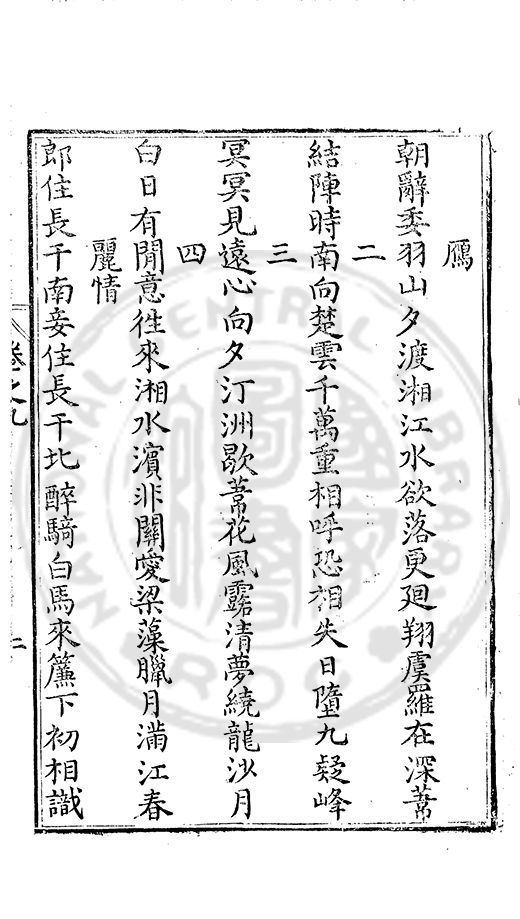 鴈
朝辭委羽山夕渡湘江水欲落更廻翔虞羅在深葦
二
結陣時南向楚雲千萬重相呼恐相失日墮九疑峰
三
冥冥見遠心向夕汀洲歇葦花風露清夢繞龍沙月
四
白日有閒意徃來湘水濱非關愛梁藻臘月滿江春
麗情
郎住長干南妾住長干北醉騎白馬來簾下初相識
卷之九
二
NATIONAL CENTRAL LIBRARY